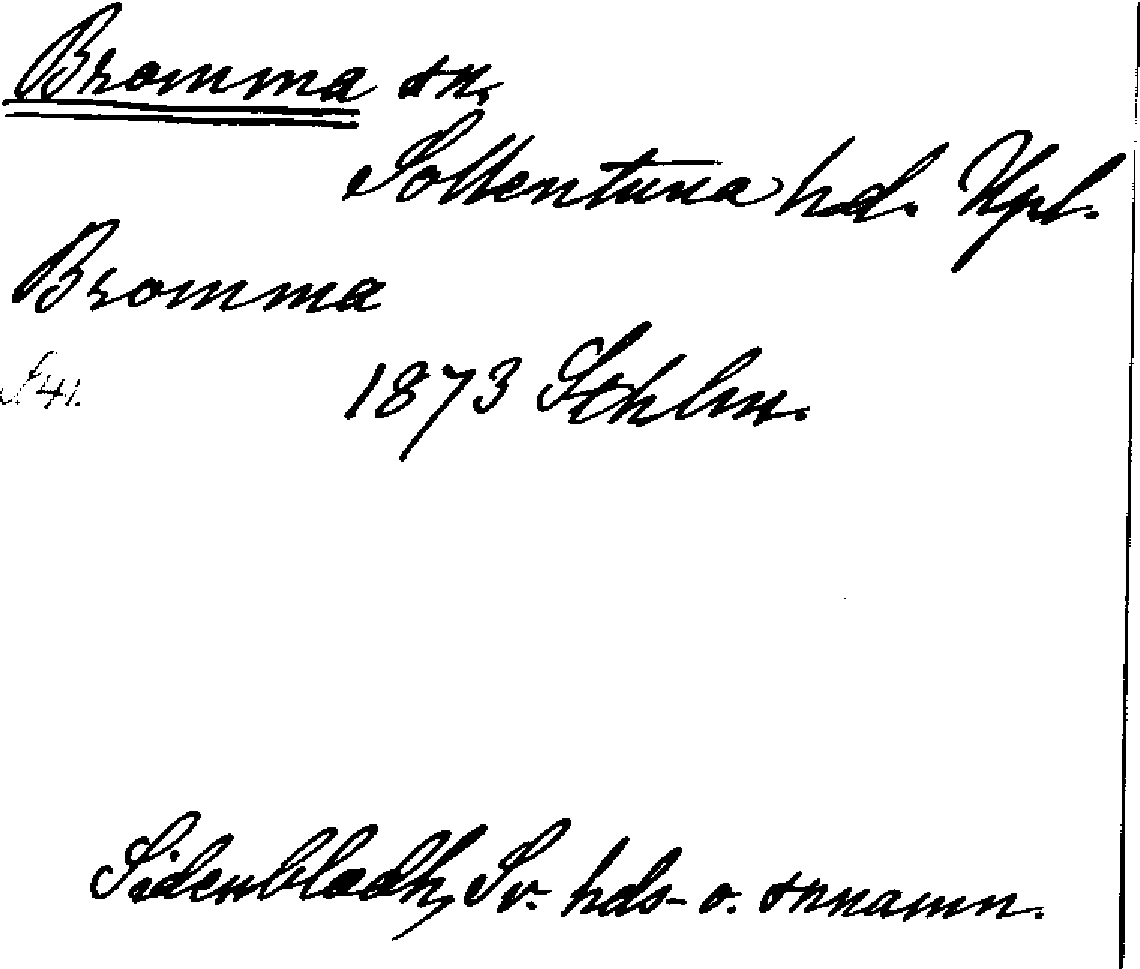 Bromma sn.
Sollentuna hd. Upl.
Bromma
S. 41. 1873 Sthlm.
Sidenbladh, Sv. hds- o. snnamn.